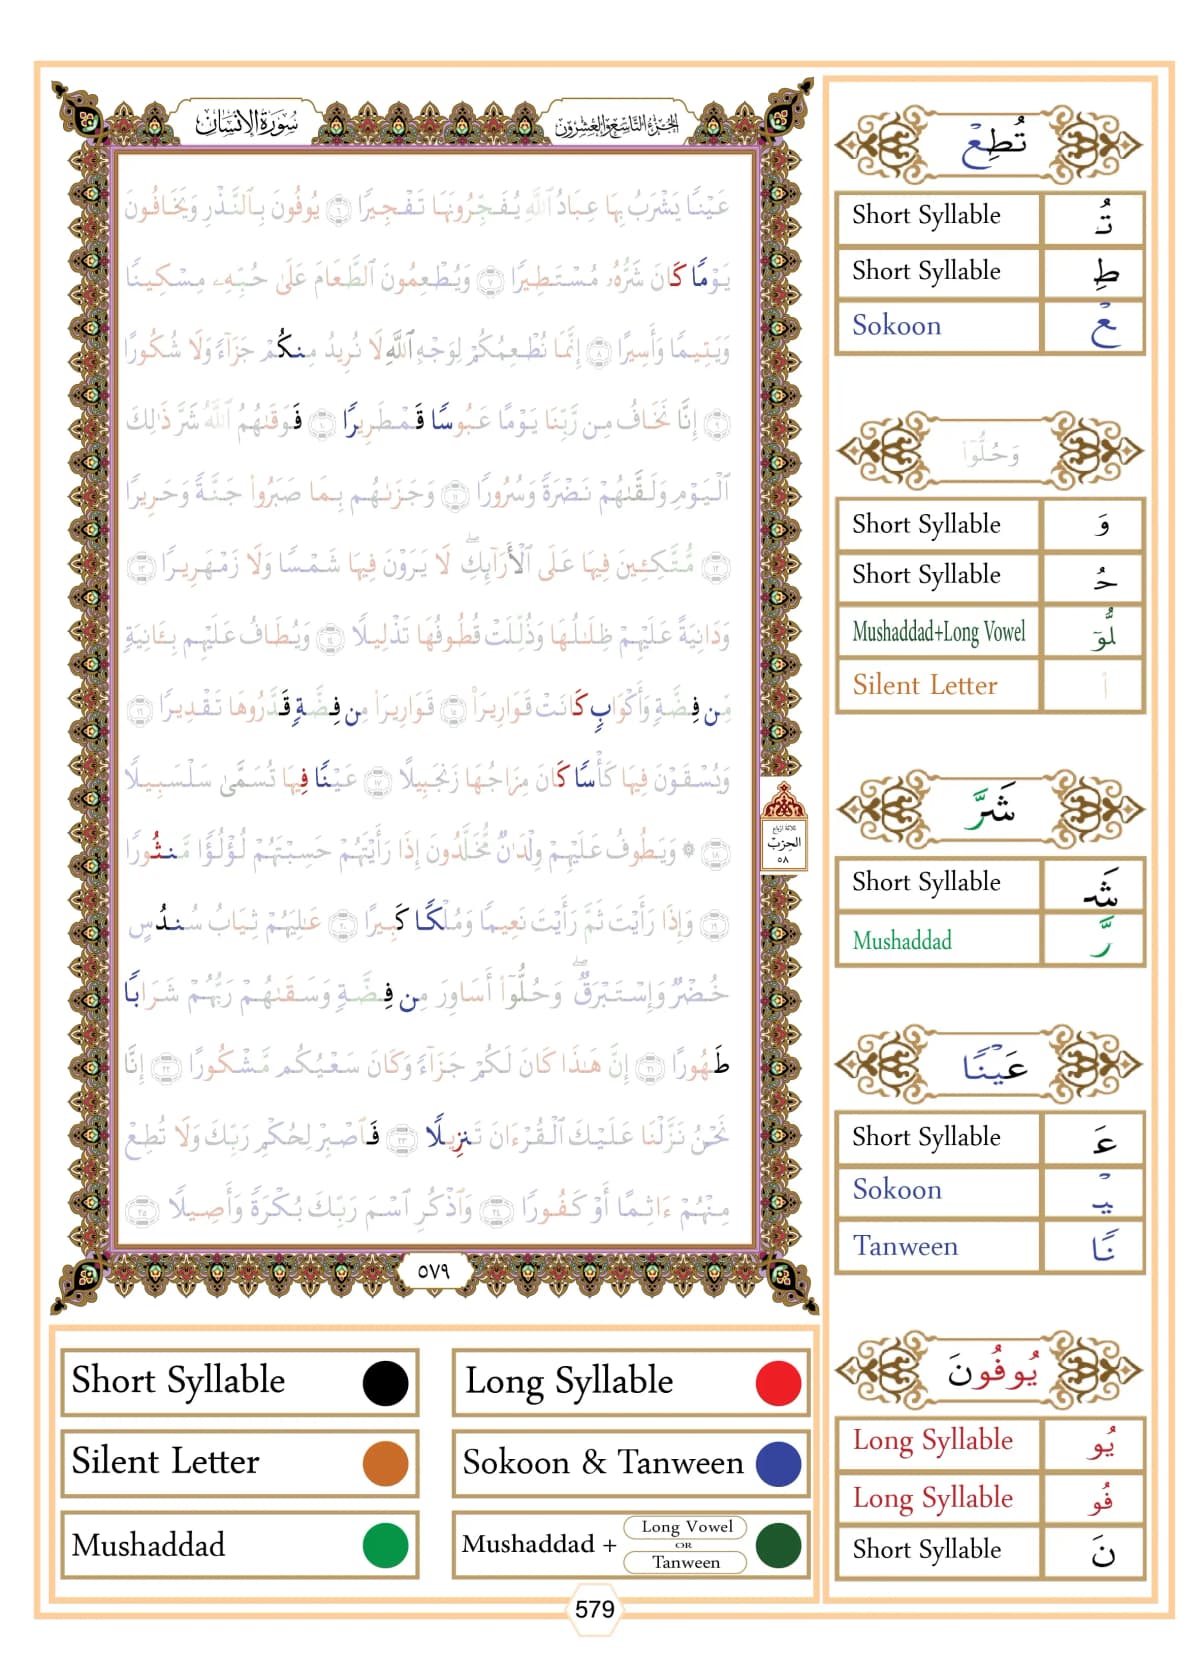 سُورَةُ الإِنْسَان
الجُزْءُ التَّاسِعُ وَالعِشْرُون
عَيْنًا يَشْرَبُ بِهَا عِبَادُ ٱللَّهِ يُفَجِّرُونَهَا تَفْجِيرًا ۝٦ يُوفُونَ بِٱلنَّذْرِ وَيَخَافُونَ
يَوْمًا كَانَ شَرُّهُۥ مُسْتَطِيرًا ۝٧ وَيُطْعِمُونَ ٱلطَّعَامَ عَلَىٰ حُبِّهِۦ مِسْكِينًا
وَيَتِيمًا وَأَسِيرًا ۝٨ إِنَّمَا نُطْعِمُكُمْ لِوَجْهِ ٱللَّهِ لَا نُرِيدُ مِنكُمْ جَزَآءً وَلَا شُكُورًا
۝٩ إِنَّا نَخَافُ مِن رَّبِّنَا يَوْمًا عَبُوسًا قَمْطَرِيرًا ۝١٠ فَوَقَىٰهُمُ ٱللَّهُ شَرَّ ذَٰلِكَ
ٱلْيَوْمِ وَلَقَّىٰهُمْ نَضْرَةً وَسُرُورًا ۝١١ وَجَزَىٰهُم بِمَا صَبَرُوا۟ جَنَّةً وَحَرِيرًا
۝١٢ مُّتَّكِـِٔينَ فِيهَا عَلَى ٱلْأَرَآئِكِ ۖ لَا يَرَوْنَ فِيهَا شَمْسًا وَلَا زَمْهَرِيرًا ۝١٣
وَدَانِيَةً عَلَيْهِمْ ظِلَٰلُهَا وَذُلِّلَتْ قُطُوفُهَا تَذْلِيلًا ۝١٤ وَيُطَافُ عَلَيْهِم بِـَٔانِيَةٍ
مِّن فِضَّةٍ وَأَكْوَابٍ كَانَتْ قَوَارِيرَا۠ ۝١٥ قَوَارِيرَا۟ مِن فِضَّةٍ قَدَّرُوهَا تَقْدِيرًا ۝١٦
وَيُسْقَوْنَ فِيهَا كَأْسًا كَانَ مِزَاجُهَا زَنجَبِيلًا ۝١٧ عَيْنًا فِيهَا تُسَمَّىٰ سَلْسَبِيلًا
۝١٨ ۞ وَيَطُوفُ عَلَيْهِمْ وِلْدَٰنٌ مُّخَلَّدُونَ إِذَا رَأَيْتَهُمْ حَسِبْتَهُمْ لُؤْلُؤًا مَّنثُورًا
۝١٩ وَإِذَا رَأَيْتَ ثَمَّ رَأَيْتَ نَعِيمًا وَمُلْكًا كَبِيرًا ۝٢٠ عَٰلِيَهُمْ ثِيَابُ سُندُسٍ
خُضْرٌ وَإِسْتَبْرَقٌ ۖ وَحُلُّوٓا۟ أَسَاوِرَ مِن فِضَّةٍ وَسَقَىٰهُمْ رَبُّهُمْ شَرَابًا
طَهُورًا ۝٢١ إِنَّ هَٰذَا كَانَ لَكُمْ جَزَآءً وَكَانَ سَعْيُكُم مَّشْكُورًا ۝٢٢ إِنَّا
نَحْنُ نَزَّلْنَا عَلَيْكَ ٱلْقُرْءَانَ تَنزِيلًا ۝٢٣ فَٱصْبِرْ لِحُكْمِ رَبِّكَ وَلَا تُطِعْ
مِنْهُمْ ءَاثِمًا أَوْ كَفُورًا ۝٢٤ وَٱذْكُرِ ٱسْمَ رَبِّكَ بُكْرَةً وَأَصِيلًا ۝٢٥
ثلاثة ارباع
الحِزْبُ
٥٨
٥٧٩
تُطِعْ
Short Syllable تُ
Short Syllable طِ
Sokoon عْ
وَحُلُّوٓا۟
Short Syllable وَ
Short Syllable حُ
Mushaddad+Long Vowel لُّوٓ
Silent Letter ا
شَرَّ
Short Syllable شَ
Mushaddad رَّ
عَيْنًا
Short Syllable عَ
Sokoon يْ
Tanween نًا
يُوفُونَ
Long Syllable يُو
Long Syllable فُو
Short Syllable نَ
Short Syllable
Long Syllable
Silent Letter
Sokoon & Tanween
Mushaddad
Mushaddad + Long Vowel OR Tanween
579